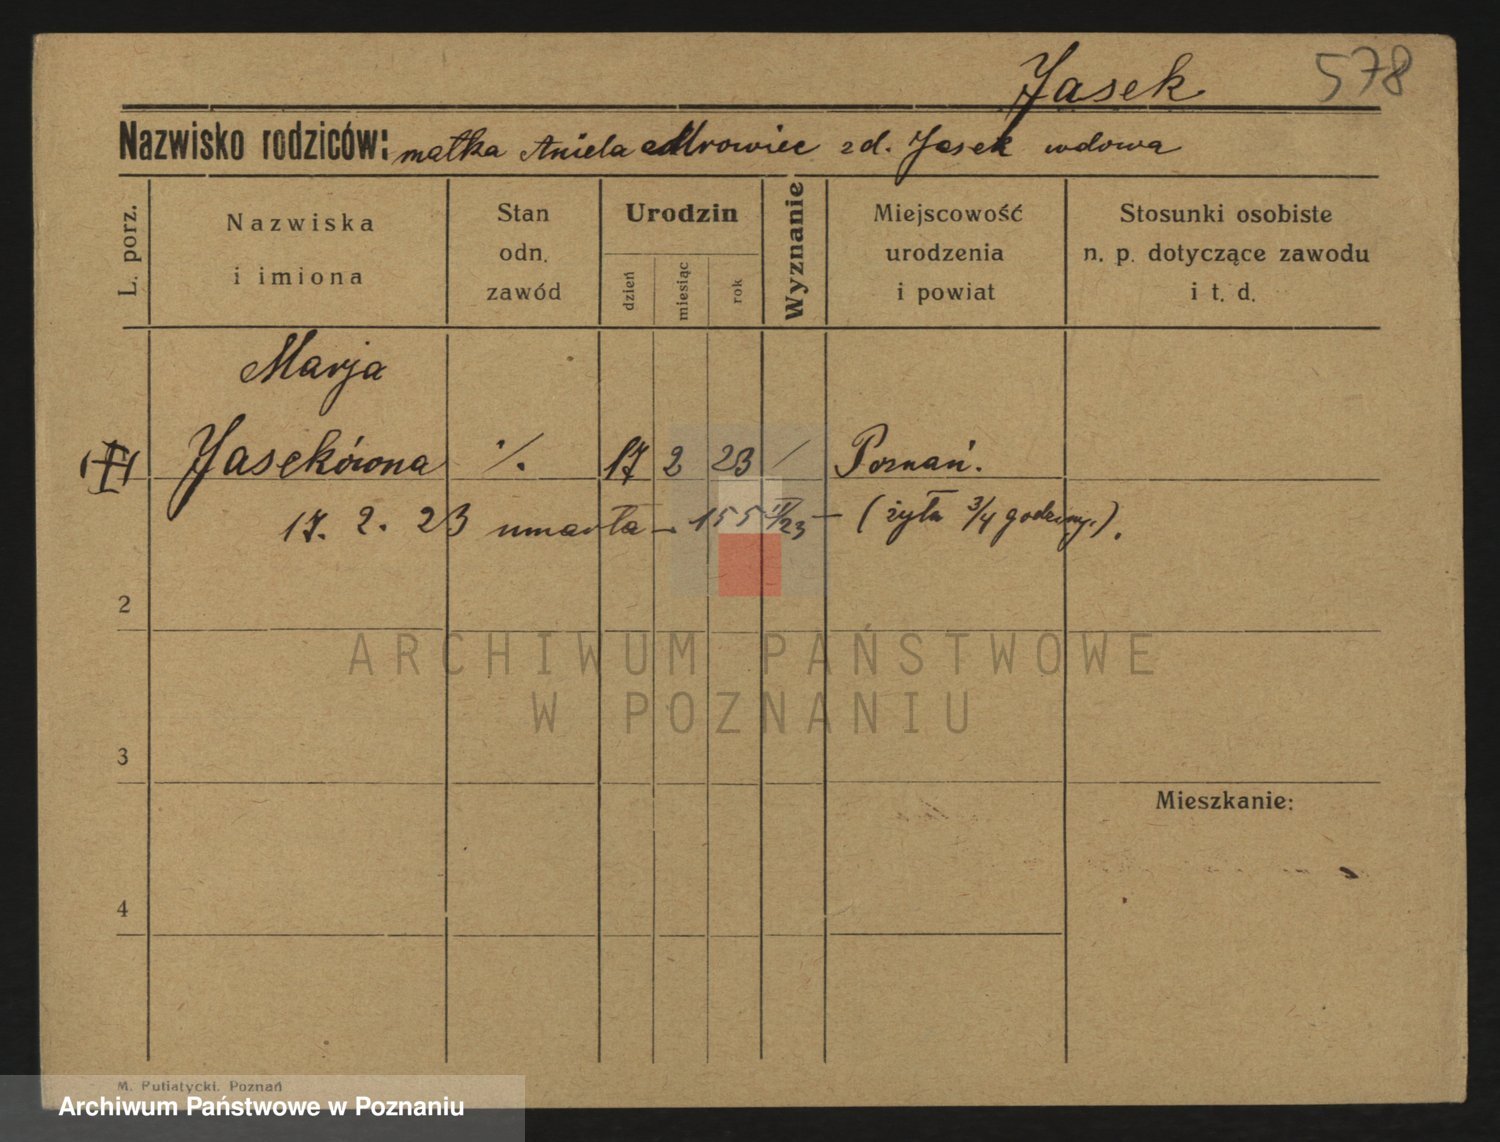 Jasek 578
Nazwisko rodziców: matka Aniela Mrowiec zd. Jasek wdowa
L. porz.
Nazwiska
i imiona
Stan
odn.
zawód
Urodzin
dzień
miesiąc
rok
Wyznanie
Miejscowość
urodzenia
i powiat
Stosunki osobiste
n. p. dotyczące zawodu
i t. d.
Marja
Jasekówna ·/. 17 2 23 / Poznań.
17. 2. 23 umarła – 155 II/23 – (żyła 3/4 godziny).
2
ARCHIWUM PAŃSTWOWE
W POZNANIU
3
Mieszkanie:
4
M. Putiatycki, Poznań
Archiwum Państwowe w Poznaniu